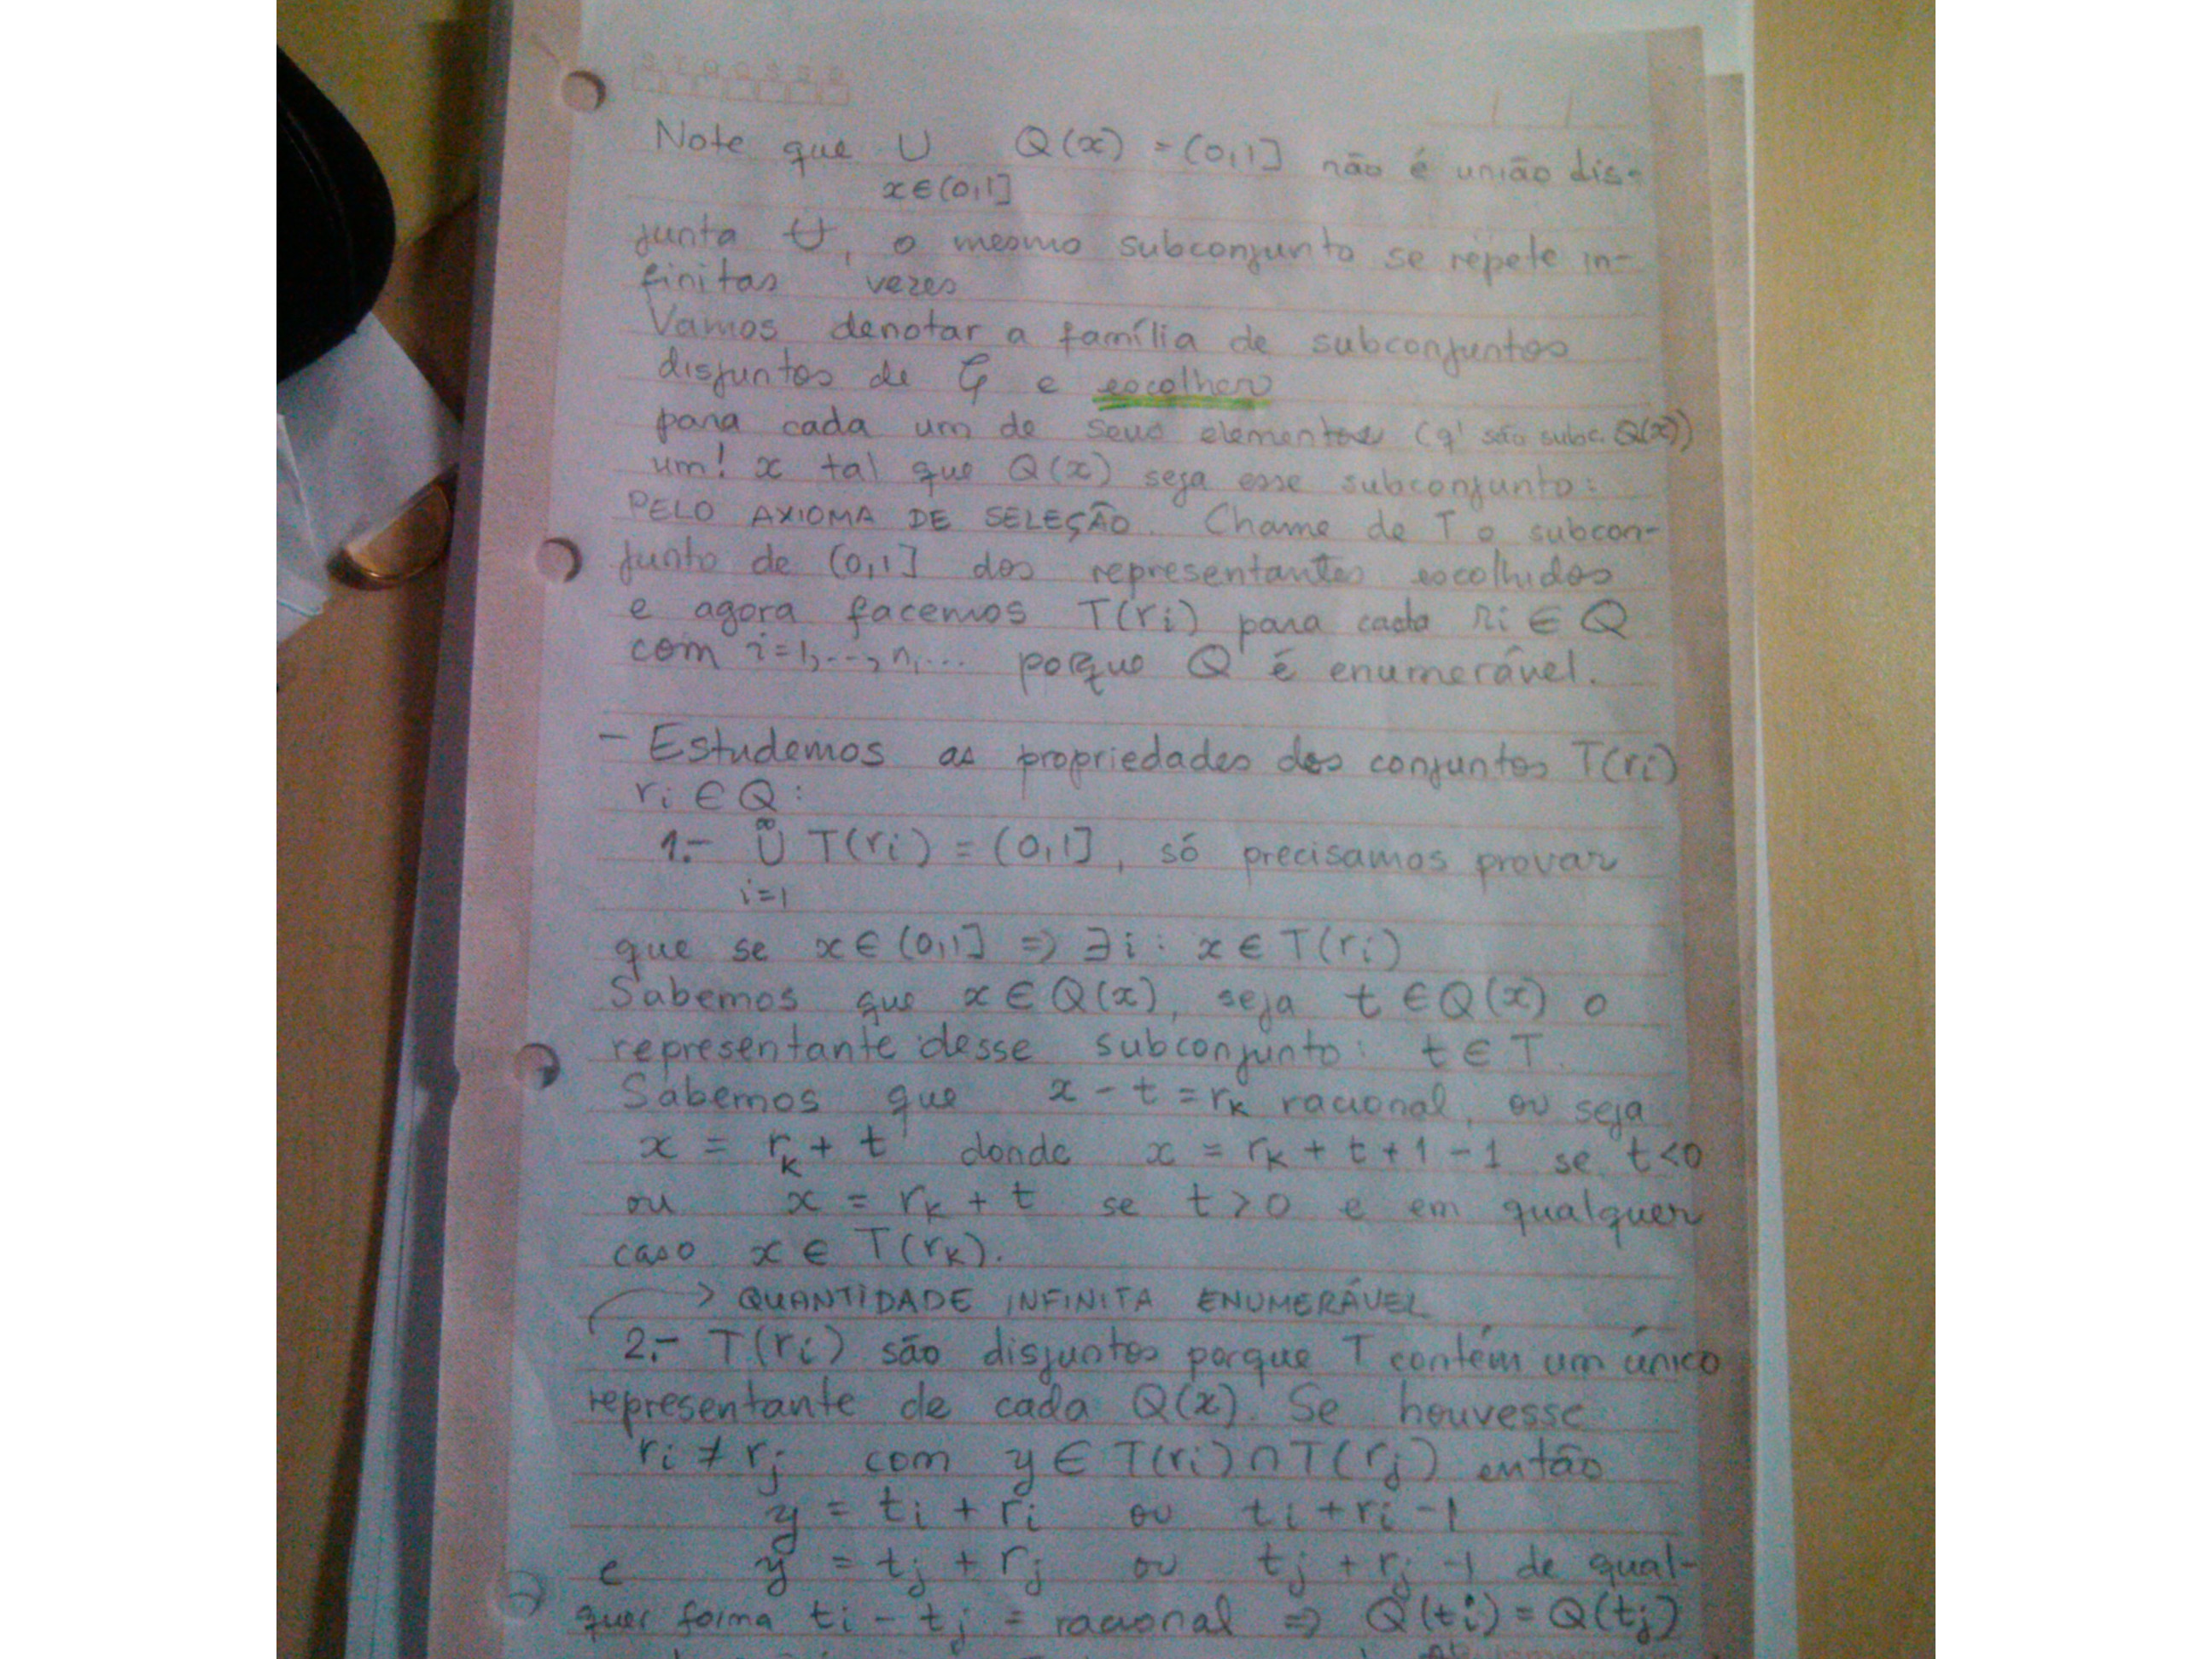 Note que ∪ Q(x) = (0,1] não é união dis-
x∈(0,1]
junta ⊎, o mesmo subconjunto se repete in-
finitas vezes
Vamos denotar a família de subconjuntos
disjuntos de G e escolher
para cada um de seus elementos (q' são subc. Q(x))
um! x tal que Q(x) seja esse subconjunto:
PELO AXIOMA DE SELEÇÃO. Chame de T o subcon-
junto de (0,1] dos representantes escolhidos
e agora facemos T(ri) para cada ri ∈ Q
com i=1,...,n,... porque Q é enumerável.
- Estudemos as propriedades dos conjuntos T(ri)
ri ∈ Q :
1.- ∞∪ T(ri) = (0,1], só precisamos provar
i=1
que se x ∈ (0,1] ⇒ ∃ i : x ∈ T(ri)
Sabemos que x ∈ Q(x), seja t ∈ Q(x) o
representante desse subconjunto: t ∈ T.
Sabemos que x - t = rk racional, ou seja
x = rk + t donde x = rk + t + 1 - 1 se t < 0
ou x = rk + t se t > 0 e em qualquer
caso x ∈ T(rk).
→ QUANTIDADE INFINITA ENUMERÁVEL
2.- T(ri) são disjuntos porque T contém um único
representante de cada Q(x). Se houvesse
ri ≠ rj com y ∈ T(ri) ∩ T(rj) então
y = ti + ri ou ti + ri - 1
e y = tj + rj ou tj + rj - 1 de qual-
quer forma ti - tj = racional ⇒ Q(ti) = Q(tj)